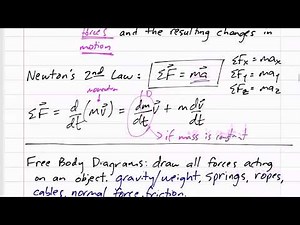 forces and the resulting changes in
motion
Newton's 2nd Law : ΣF⃗ = ma⃗
ΣFx = max
ΣFy = may
ΣFz = maz
momentum
ΣF⃗ = d/dt (mv⃗) = dm/dt v⃗ + m dv⃗/dt
if mass is constant
Free Body Diagrams: draw all forces acting
on an object. gravity/weight, springs, ropes,
cables, normal force, friction.